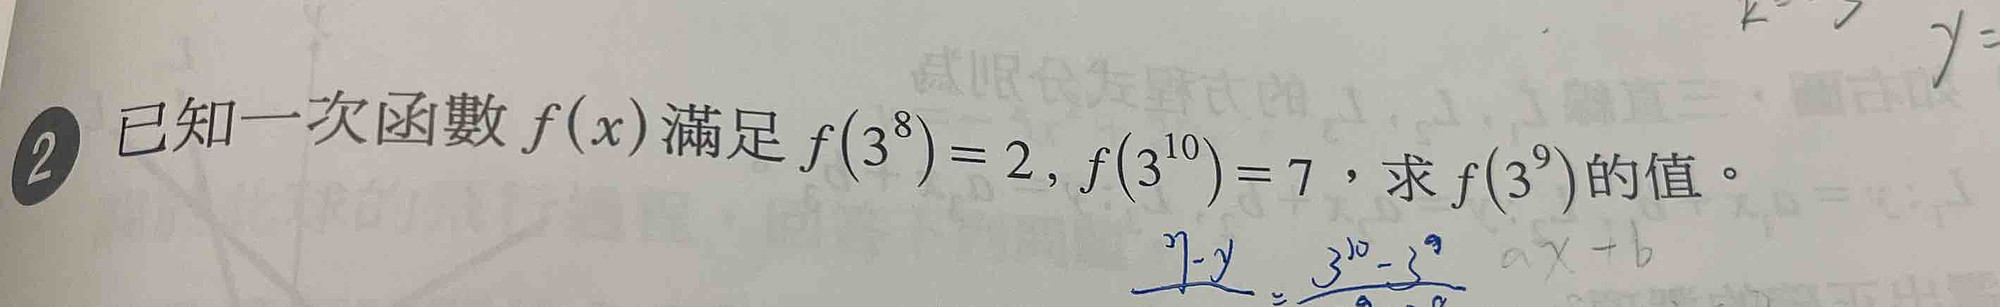 y=
2 已知一次函數 f(x) 滿足 f(3⁸) = 2, f(3¹⁰) = 7，求 f(3⁹) 的值。
ax + b
7-y = 3¹⁰-3⁹